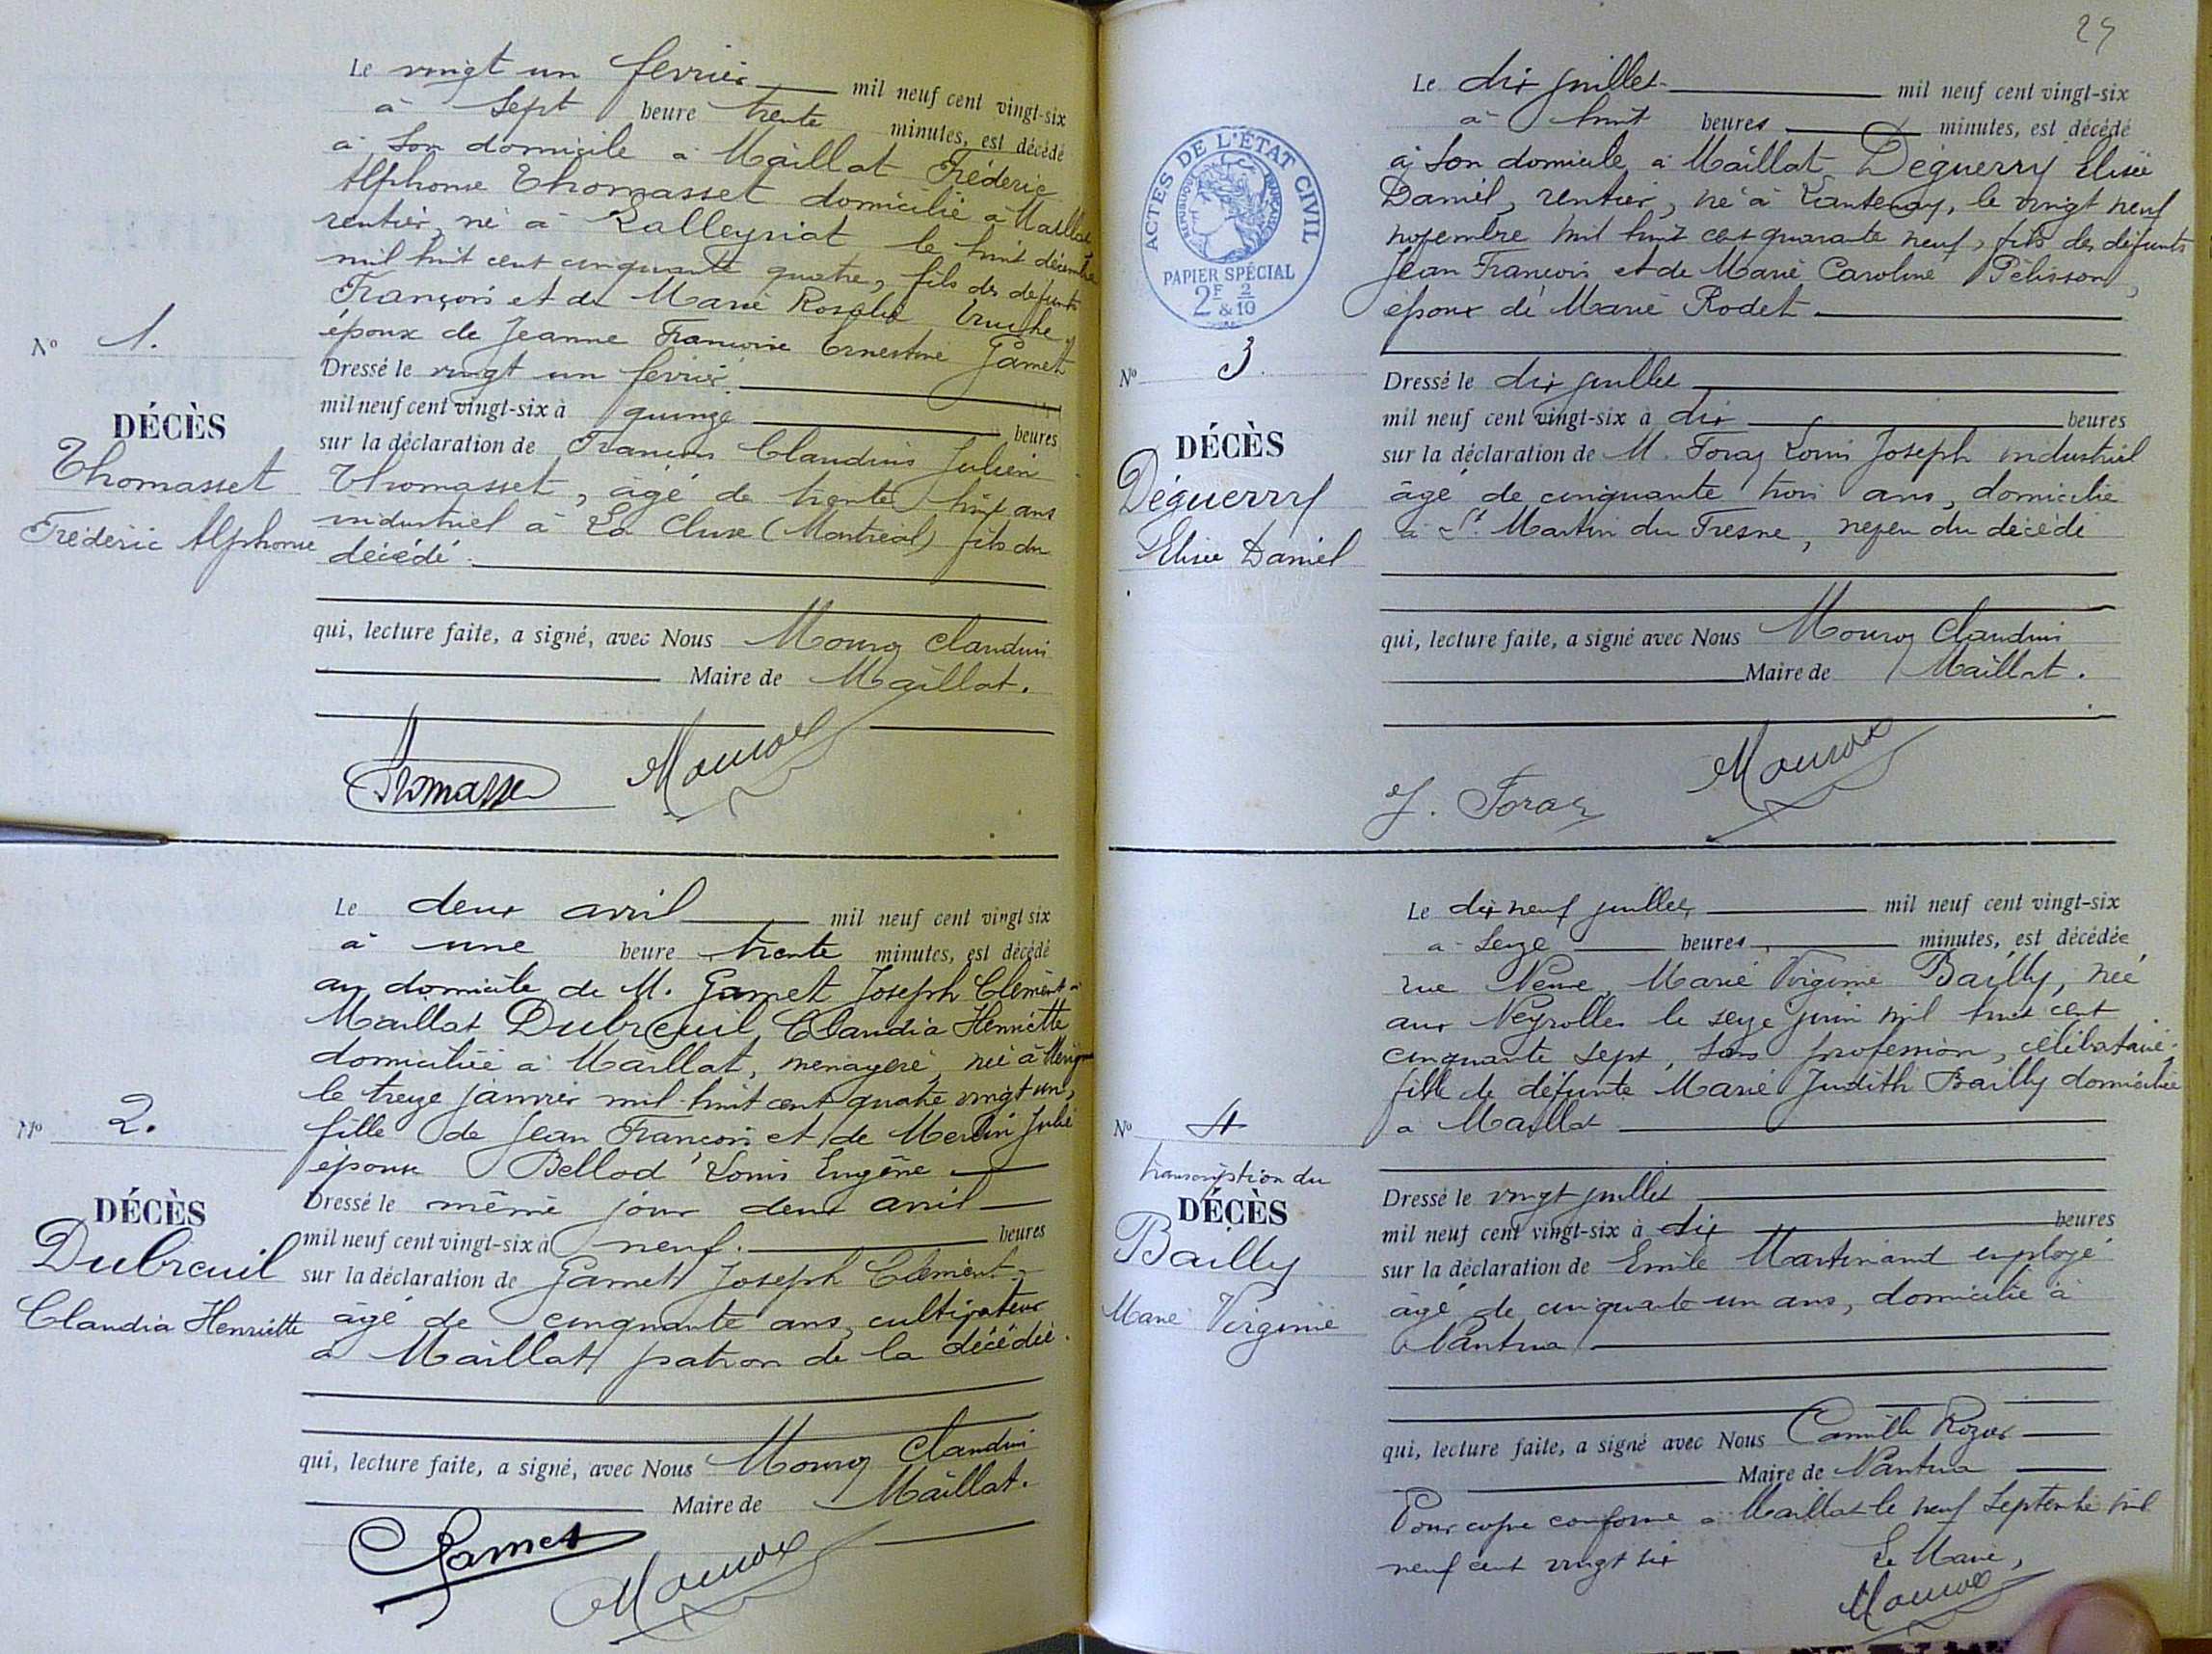 Le vingt un fevrier mil neuf cent vingt-six
à sept heure trente minutes, est décédé
à son domicile à Maillat Fréderic
Alphonse Thomasset domicilié à Maillat
rentier, né à Lalleyriat le huit décembre
mil huit cent cinquante quatre, fils des defunts
François et de Marie Rosalie
époux de Jeanne Françoise Ernestine Gamet
Dressé le vingt un fevrier
mil neuf cent vingt-six à quinze heures
sur la déclaration de Francois Claudius Julien
Thomasset, âgé de trente huit ans
industriel à La Cluse (Montréal) fils du
décédé.
Nº 1.
DÉCÈS
Thomasset
Fréderic Alphonse
qui, lecture faite, a signé, avec Nous Claudius
Maire de Maillat.
Thomasset
Le deux avril mil neuf cent vingt six
à une heure trente minutes, est décédé
au domicile de M. Gamet Joseph Clément à
Maillat Dubreuil Claudia Henriette
domiciliée à Maillat, ménagère, née à
le treize janvier mil huit cent quatre vingt un,
fille de Jean François et de Merlin Julie
épouse Bellod Louis Eugène
Dressé le même jour deux avril
mil neuf cent vingt-six à neuf. heures
sur la déclaration de Gamet Joseph Clément
âgé de cinquante ans, cultivateur
à Maillat patron de la décédée.
Nº 2.
DÉCÈS
Dubreuil
Claudia Henriette
qui, lecture faite, a signé, avec Nous Claudius
Maire de Maillat.
Gamet
25
Le dix juillet mil neuf cent vingt-six
à huit heures minutes, est décédé
à son domicile à Maillat Déguerry Elisée
Daniel, rentier, né à Lantenay, le vingt neuf
novembre mil huit cent quarante neuf, fils des défunts
Jean François et de Marie Caroline Pélisson,
époux de Marie Rodet
ACTES DE L'ÉTAT CIVIL
RÉPUBLIQUE FRANÇAISE
PAPIER SPÉCIAL
2F 2/10
&
Dressé le dix juillet
mil neuf cent vingt-six à dix heures
sur la déclaration de M. Foray Louis Joseph industriel
âgé de cinquante trois ans, domicilié
à St Martin du Fresne, neveu du décédé
Nº 3.
DÉCÈS
Déguerry
Elisée Daniel
qui, lecture faite, a signé avec Nous Claudius
Maire de Maillat.
J. Foray
Le dix neuf juillet mil neuf cent vingt-six
à seize heures, minutes, est décédée
rue Neuve, Marie Virginie Bailly, née
aux Neyrolles le seize juin mil huit cent
cinquante sept, sans profession, célibataire.
fille de défunte Marie Judith Bailly domiciliée
à Maillat
Nº 4
transcription du
DÉCÈS
Bailly
Marie Virginie
Dressé le vingt juillet
mil neuf cent vingt-six à dix heures
sur la déclaration de Emile Martinand employé
âgé de cinquante un ans, domicilié à
Nantua
qui, lecture faite, a signé avec Nous Camille Rozier
Maire de Nantua
Pour copie conforme à Maillat le neuf Septembre mil
neuf cent vingt six Le Maire,